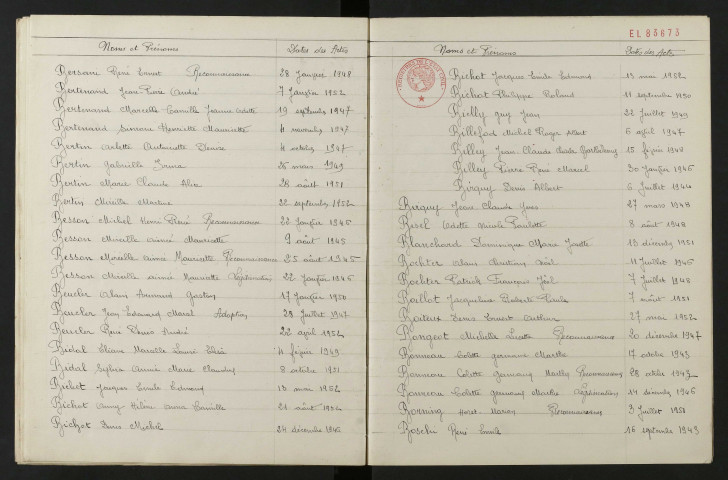 Noms et Prénoms Dates des Actes
Bersoni René Ernest Reconnaissance 28 Janvier 1948
Bertenand Jean Pierre André 7 Janvier 1952
Bertenand Marcelle Camille Jeanne Odette 19 septembre 1947
Bertenand Simone Henriette Mauricette 4 novembre 1947
Bertin Arlette Antoinette Denise 4 octobre 1947
Bertin Gabrielle 26 mars 1949
Bertin Marie Claude Alice 28 août 1951
Bertin Mireille Martine 22 septembre 1952
Besson Michel Henri René Reconnaissance 22 Janvier 1946
Besson Mireille Aimée Mauricette 9 août 1945
Besson Mireille Aimée Mauricette Reconnaissance 25 août 1945
Besson Mireille Aimée Mauricette Légitimation 22 Janvier 1946
Beucler Alain Armand Gaston 17 Janvier 1950
Beucler Jean Edouard Marcel Adoption 28 Juillet 1947
Beucler René Denis André 22 avril 1952
Bidal Eliane Marcelle Louise 4 février 1949
Bidal Sylvie Annie Marie Claudine 8 octobre 1951
Bichet Jacques Emile Edmond 13 mai 1952
Bichot Anny Hélène Marie Camille 21 août 1952
Bichot Denis Michel 24 décembre 1946
EL 83673
Noms et Prénoms Dates des Actes
Bichot Jacques Emile Edmond 13 mai 1952
Bichot Philippe Roland 11 septembre 1950
Billy Guy Jean 22 Juillet 1949
Billefod Michel Roger Albert 6 avril 1947
Billey Jean Claude 15 février 1948
Billey Pierre Marcel 30 Janvier 1946
Birguy Denis Albert 6 Juillet 1944
Birguy Jean Claude Yves 27 mars 1948
Bisel Odette Nicole Paulette 8 août 1948
Blanchard Dominique Marie Josette 13 décembre 1951
Bochter Alain Christian Noël 11 Juillet 1946
Bochter Patrick François Joël 7 Juillet 1948
Boillot Jacqueline Paule 7 août 1951
Boiteux Denis Ernest Arthur 27 mai 1952
Bongeot Michelle Lucette Reconnaissance 20 décembre 1947
Bonneau Colette Germaine Marthe 17 octobre 1943
Bonneau Colette Germaine Reconnaissance 28 octobre 1943
Bonneau Colette Germaine Marthe Légitimation 14 décembre 1946
Bonning Horst Marion Reconnaissance 3 Juillet 1951
Boschi René Emile 16 septembre 1943